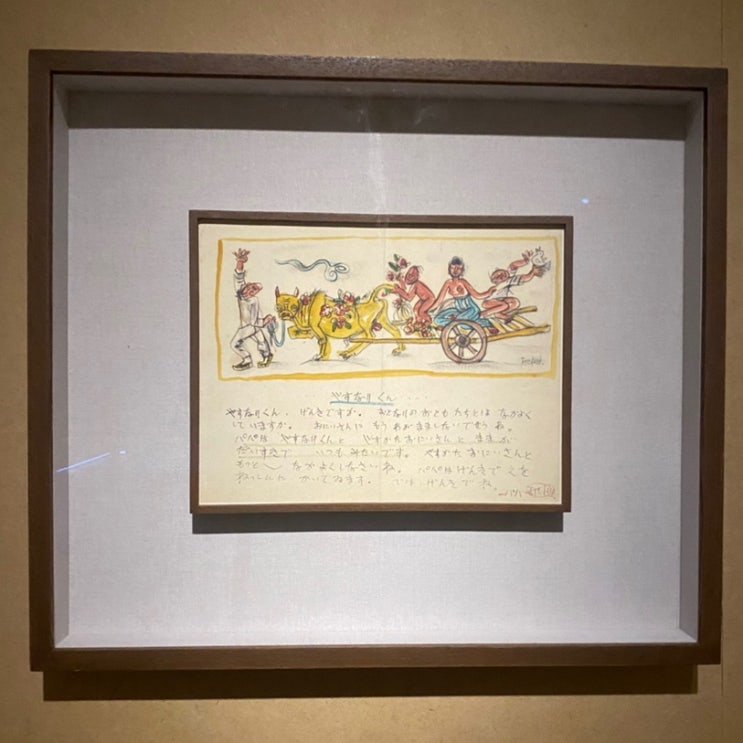 やすなりくん
やすなりくん、げんきですか。おとなりの おともだちとは なかよく
していますか。おにいさんに もう わがまましないで ね。
パパは やすなりくんと やすかたおにいさんと ままが
だいすきで いつも みたいです。やすかたおにいさんと
もっと〜 なかよくしなさいね。パパはげんきで えを
ねっしんに かいてゐます。では げんきで ね。
パパ